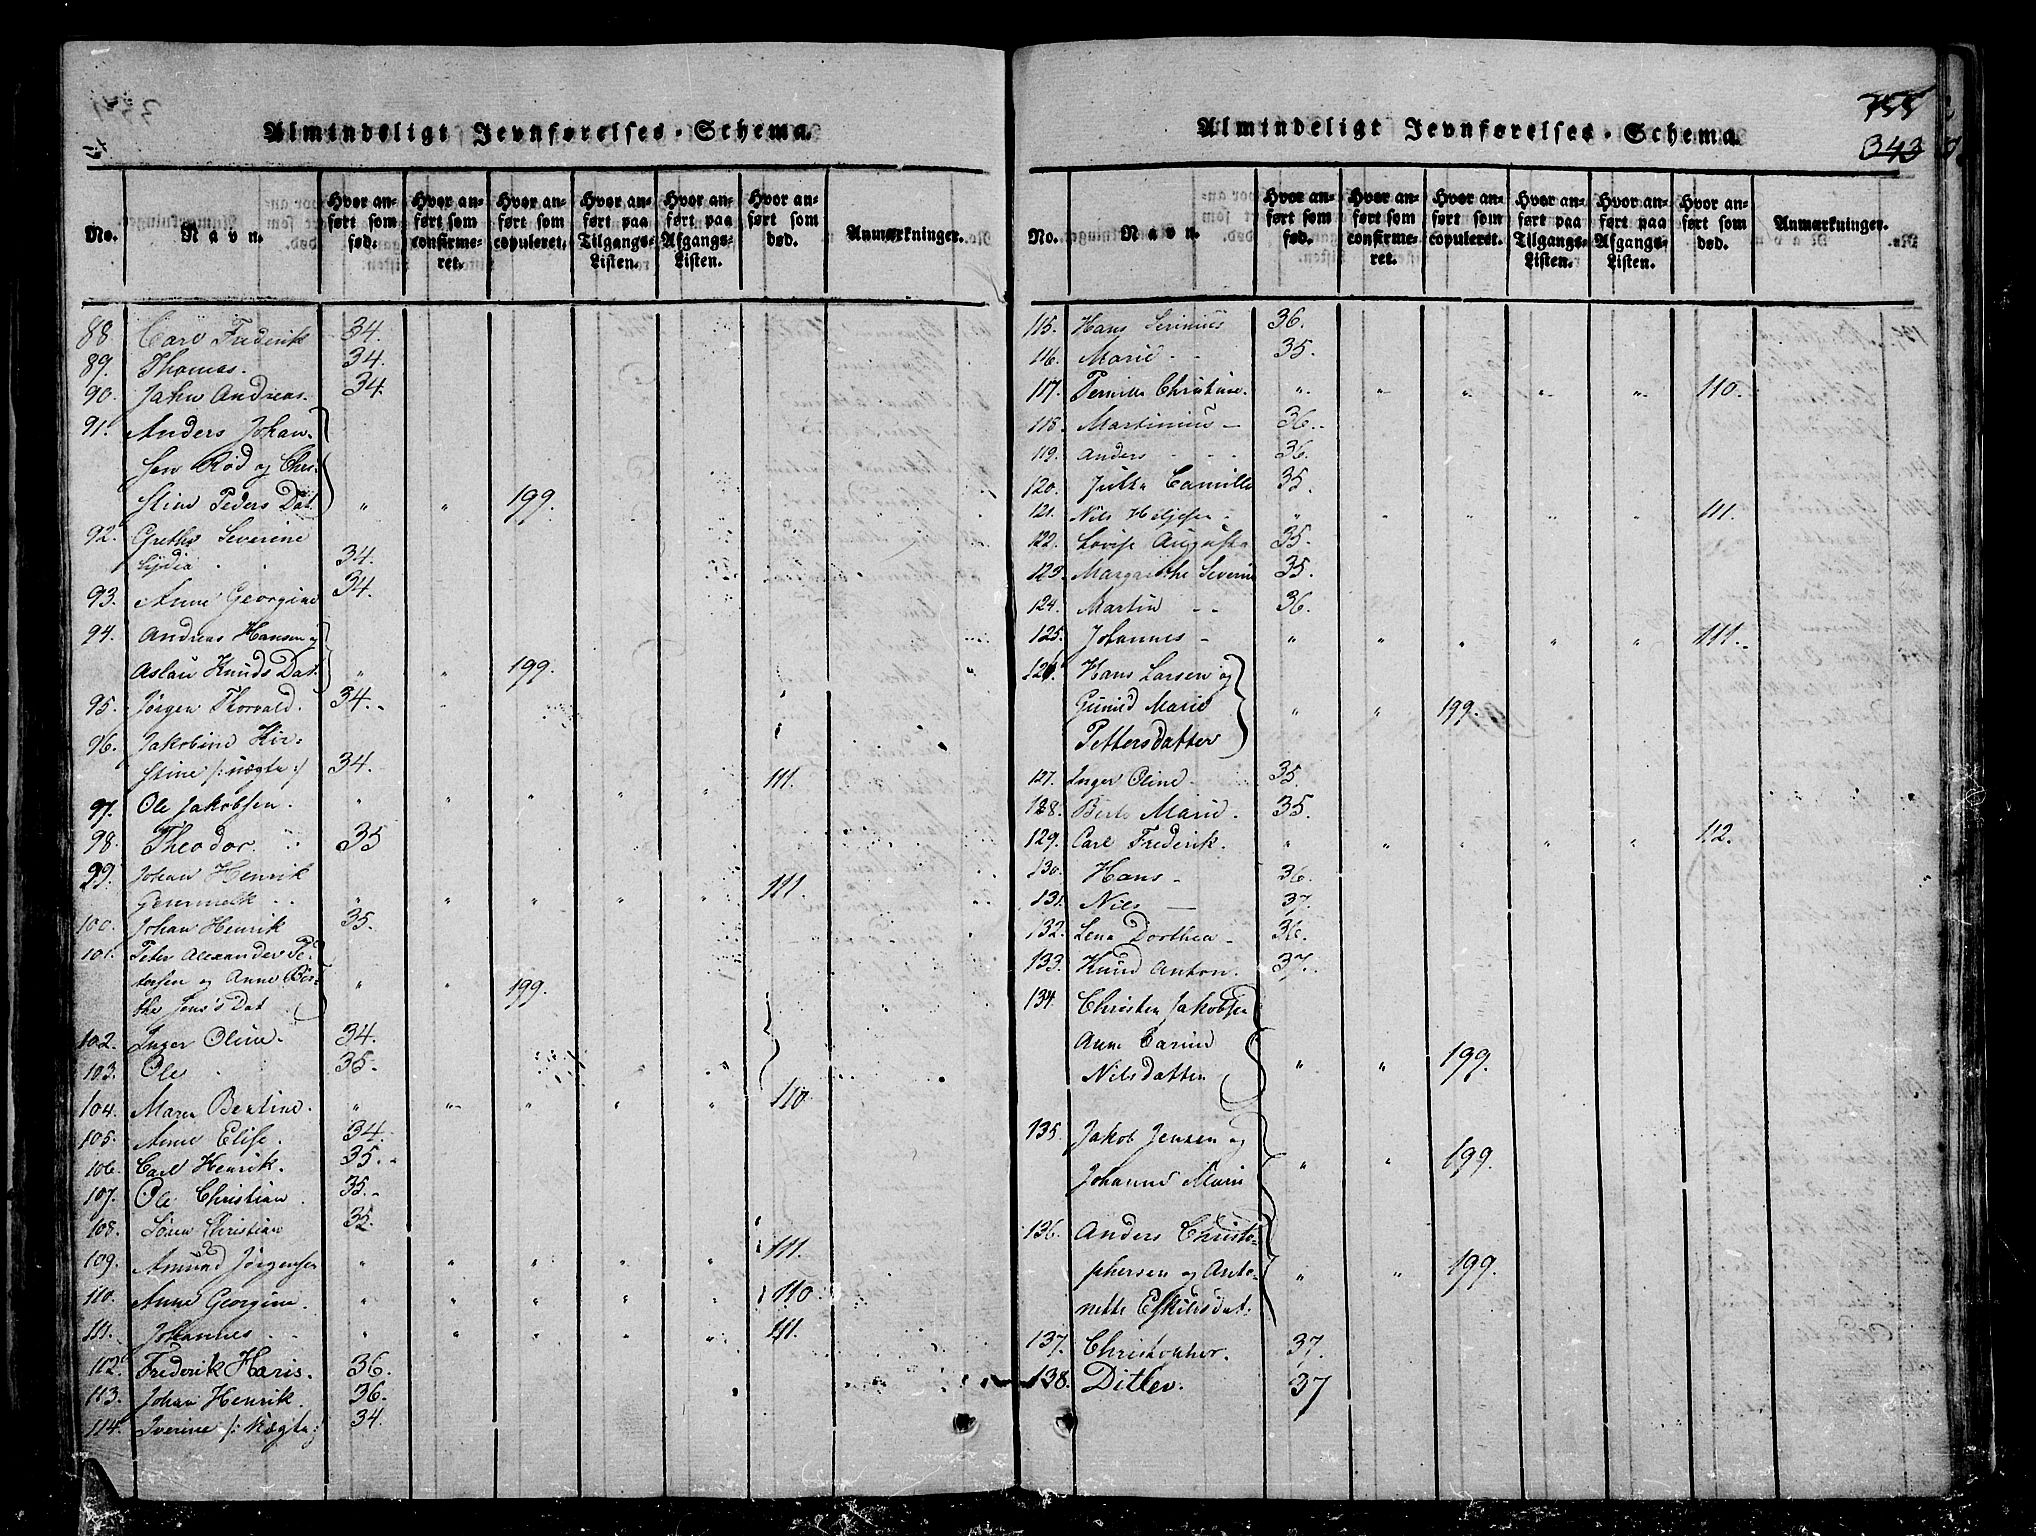 Almindeligt Jevnførelses-Schema.
No.
Navn.
Hvor anført som fød.
Hvor anført som confirmeret.
Hvor anført som copuleret.
Hvor anført paa Tilgangs-Listen.
Hvor anført paa Afgangs-Listen.
Hvor anført som død.
Anmærkninger.
88. Carl Frederik 34.
89. Thomas. 34.
90. Jahn Andreas. 34.
91. Anders Johan-
sen Rød og Chri-
stine Peders Dat. " " 199.
92. Grethe Severine
Lydia . . 34.
93. Anne Georgine 34.
94. Andreas Hansen og
Aslau Knuds Dat. " " 199.
95. Jørgen Thorvald. 34.
96. Jakobine Kir-
stine /: uægte :/ 34.
97. Ole Jakobsen. " " " " " 111.
98. Theodor. 35
99. Johan Henrik
" " " " " 111.
100. Johan Henrik 35.
101. Peter Alexander Pe-
tersen og Anne Bir-
the Jens's Dat " " 199.
102. Inger Oline. 34.
103. Ole . 35.
104. Maren Bentine. " " " " " 110
105. Anne Elise. 34.
106. Carl Henrik. 35.
107. Ole Christian. 35.
108. Søren Christian 35.
109. Amund Jørgensen " " " " " 111.
110. Anne Georgine. " " " " " 110.
111. Johannes . . " " " " " 111.
112. Frederik Haris. 36.
113. Johan Henrik. 36.
114. Iverine /: Uægte :/ 34.
Almindeligt Jevnførelses-Schema.
755
343
No.
Navn.
Hvor anført som fød.
Hvor anført som confirmeret.
Hvor anført som copuleret.
Hvor anført paa Tilgangs-Listen.
Hvor anført paa Afgangs-Listen.
Hvor anført som død.
Anmærkninger.
115. Hans Severinus 36.
116. Marie - - 35.
117. Pernille Christine. " " " " " 110.
118. Martinius - 36.
119. Anders - - - 36.
120. Jutta Camilla 35.
121. Nils Heljesen - " " " " " 111.
122. Lovise Augusta 35.
123. Margrethe Severine 35.
124. Martin - - 36.
125. Johannes - " " " " " 111.
126. Hans Larsen og
Gunild Marie
Pettersdatter " " 199.
127. Inger Oline. 35.
128. Berte Marie. 35.
129. Carl Frederik. " " " " " 112.
130. Hans - 36.
131. Nils - 37.
132. Lena Dorthea - 36.
133. Knud Anton. 37.
134. Christen Jakobsen
Anne Carine
Nilsdatter " " 199.
135. Jakob Jensen og
Johanne Marie " " 199.
136. Anders Christo-
phersen og Anto-
nette Eskildsdat: " " 199.
137. Christopher. 37.
138. Ditlev. 37